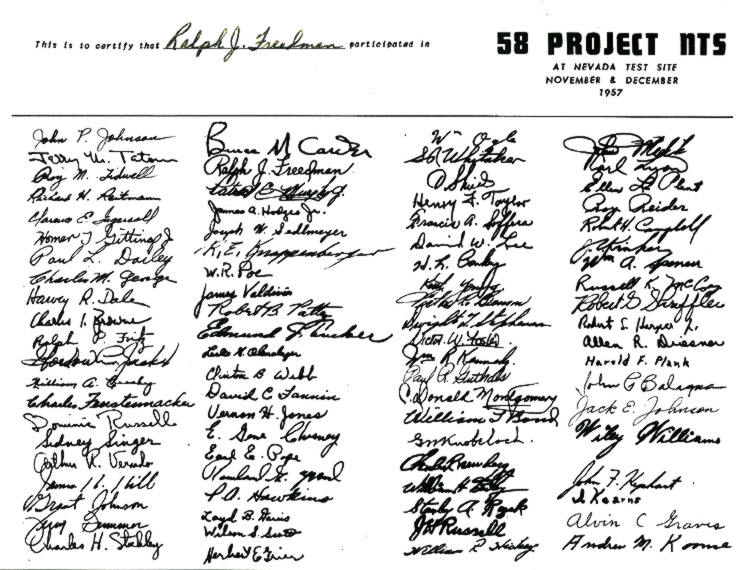 This is to certify that Ralph J. Freedman participated in
58 PROJECT NTS
AT NEVADA TEST SITE
NOVEMBER & DECEMBER
1957
John P. Johnson
Jerry W. Tatom
Roy M. Tidwell
Richard H. Reitmann
Clarence E. Ingersoll
Homer J. Gittings Jr
Paul L. Dailey
Charles M. George
Harvey R. Dale
Charles I. Browne
Ralph J. Fritz
Gordon L. Jacks
William A.
Charles Fenstermacher
Dominic Russell
Sidney Singer
Arthur R.
James W. Hill
Grant Johnson
Charles H. Stokley
Bruce M Carder
Ralph J. Freedman
James A. Hodges Jr.
Joseph W. Sedlmeyer
K. E. Knappenberger
W.R. Poe
James Valdivia
Robert B. Patty
Edmund J. Tucker
Leslie H.
Clinton B Webb
David C Fannin
Vernon H. Jones
E. Gene Choney
Earl E. Pope
P.A. Hawkins
Loyd B. Davis
Wilson S.
Herbert E Grier
Wm Ogle
SR Whitaker
D. Shields
Henry F. Taylor
Francis A.
David W. Lee
H. L.
Keith Young
Dwight L. Stephenson
Victor W.
Wm R Kennedy
Paul R. Guthals
C. Donald Montgomery
William T Bond
GM Knobeloch
William H
Stanley A.
J H Russell
William R Hickey
Karl Lyon
Ellen L Plent
Roy Reider
Robt H. Campbell
Wm A. Spencer
Russell K. McCoy
Robert G Shreffler
Robert S. Harper Jr.
Allen R. Diesner
Harold F. Plank
John C Balagna
Jack E. Johnson
Wiley Williams
John F. Kephart
J. Kearns
Alvin C Graves
Andrew M. Koonce